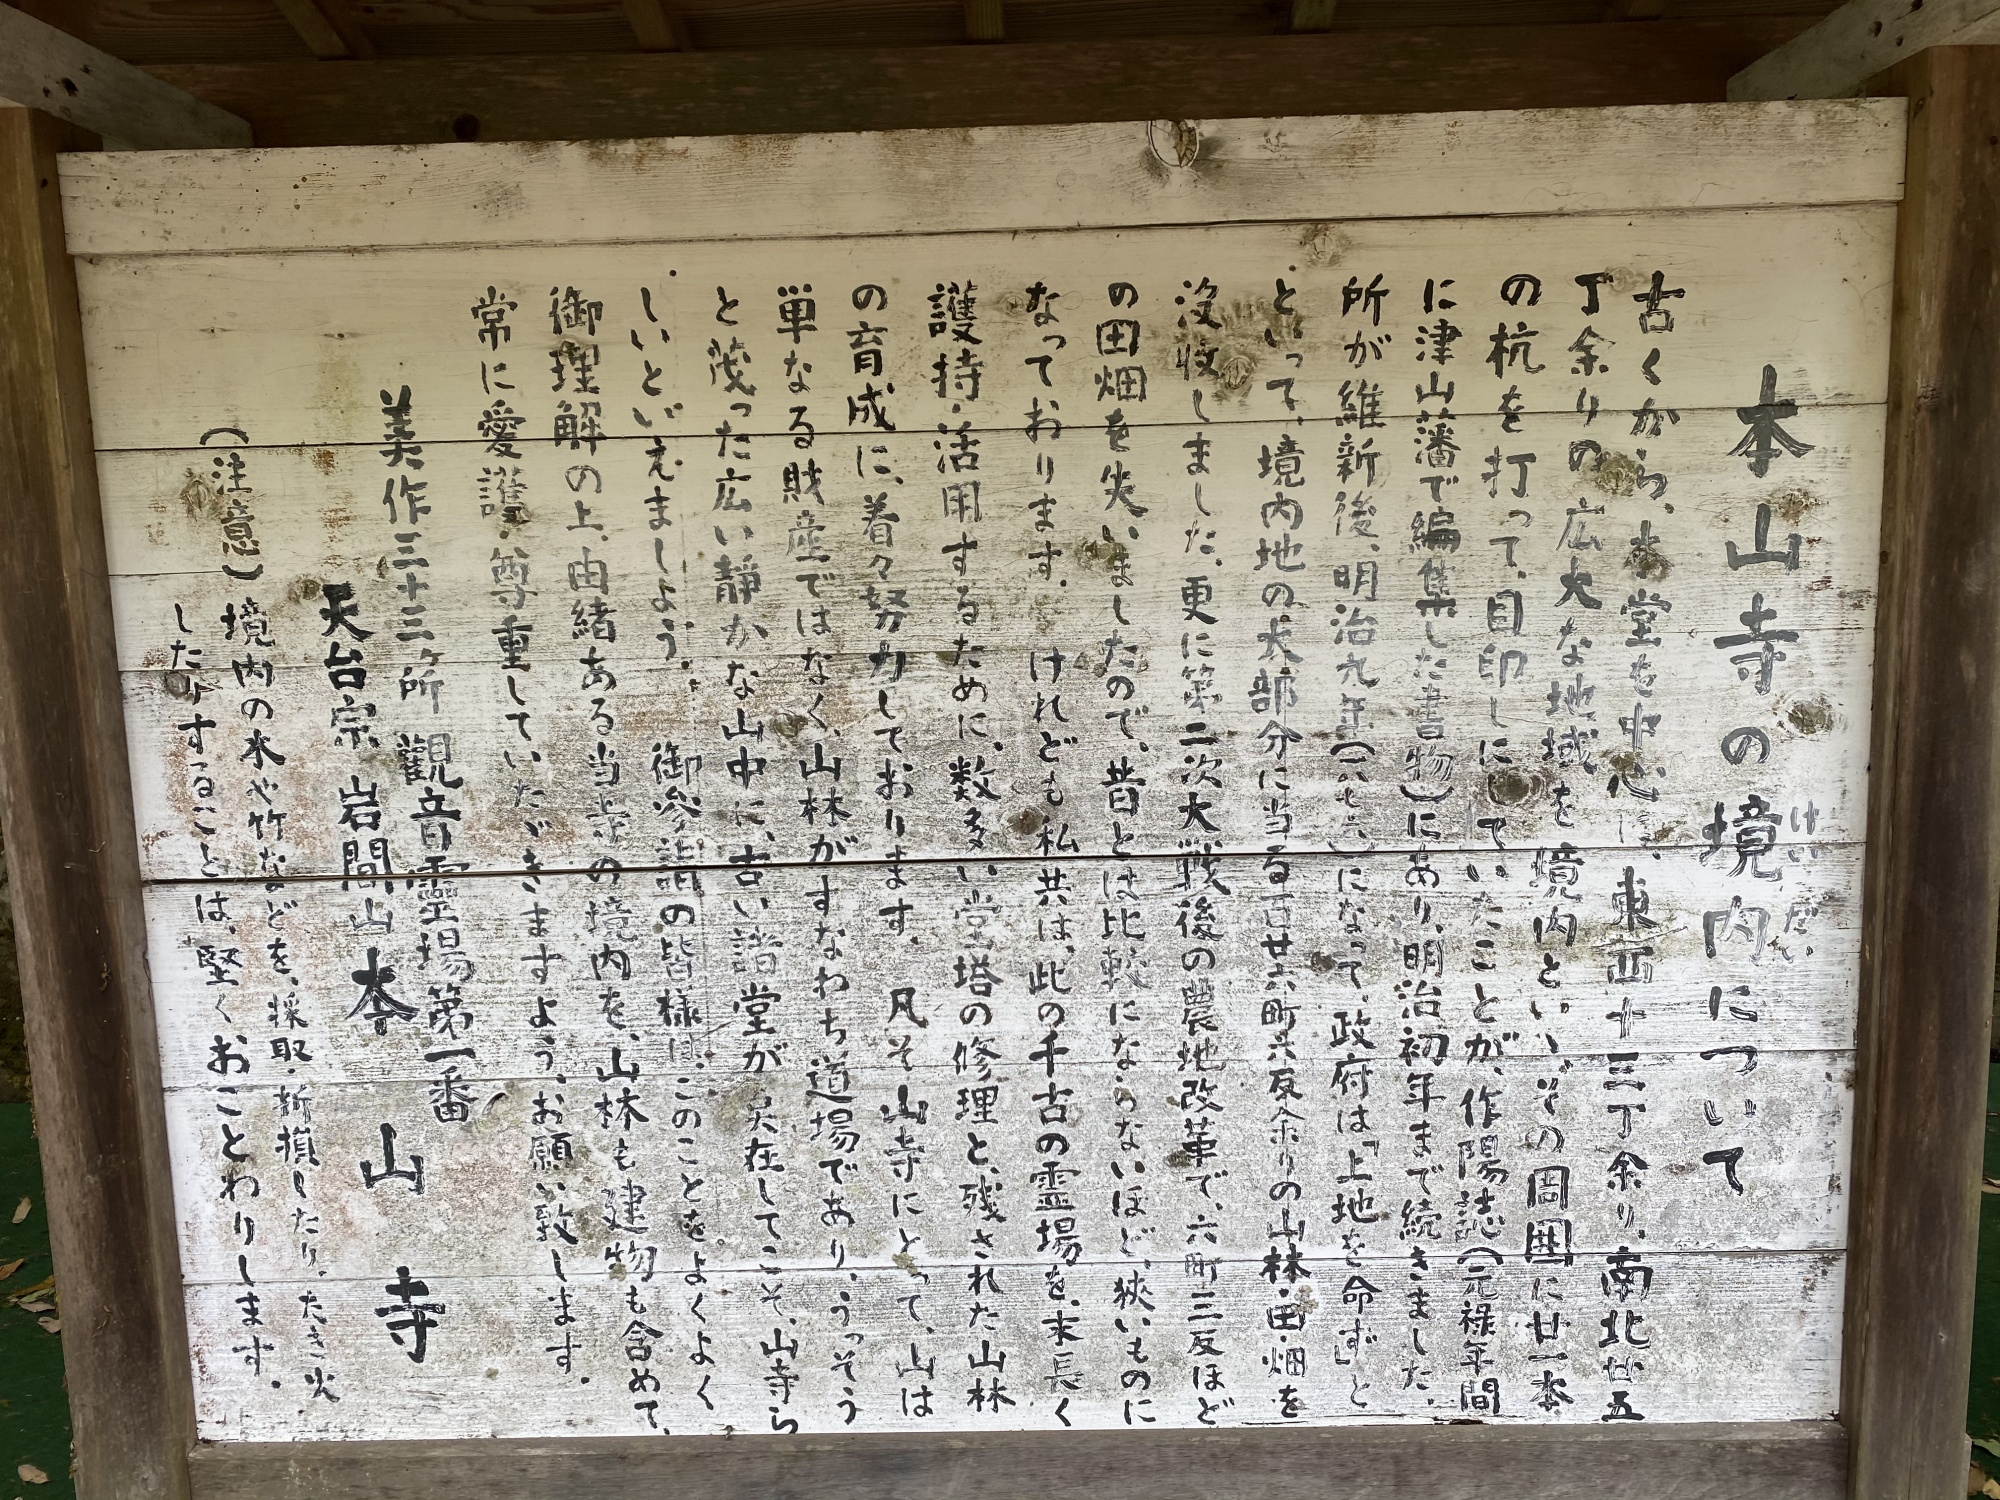 本山寺の境内について
けいだい
古くから、本堂を中心に、東西十三丁余り、南北廿五
丁余りの広大な地域を境内といい、その周囲に廿一本
の杭を打って、目印しにしていたことが、作陽誌(元禄年間
に津山藩で編集した書物)にあり、明治初年まで続きました。
所が維新後、明治九年(一八七六)になって、政府は「上地を命ず」と
といって、境内地の大部分に当る百廿六町六反余りの山林・田・畑を
没收しました。更に第二次大戦後の農地改革で、六町三反ほど
の田畑を失いましたので、昔とは比較にならないほど、狭いものに
なっております。けれども私共は、此の千古の霊場を、末長く
護持・活用するために、数多い堂塔の修理と、残された山林
の育成に、着々努力しております。凡そ山寺にとって、山は
単なる財産ではなく、山林がすなわち道場であり、うっそう
と茂った広い静かな山中に、古い諸堂が実在してこそ、山寺ら
しいといえましょう。御参詣の皆様は、このことをよくよく
御理解の上、由緒ある当寺の境内を、山林も建物も含めて、
常に愛護・尊重していただきますよう、お願い致します。
美作三十三ヶ所 觀音靈場第一番
天台宗 岩間山 本山寺
(注意)境内の木や竹などを、採取・折損したり、たき火
したりすることは、堅くおことわりします。